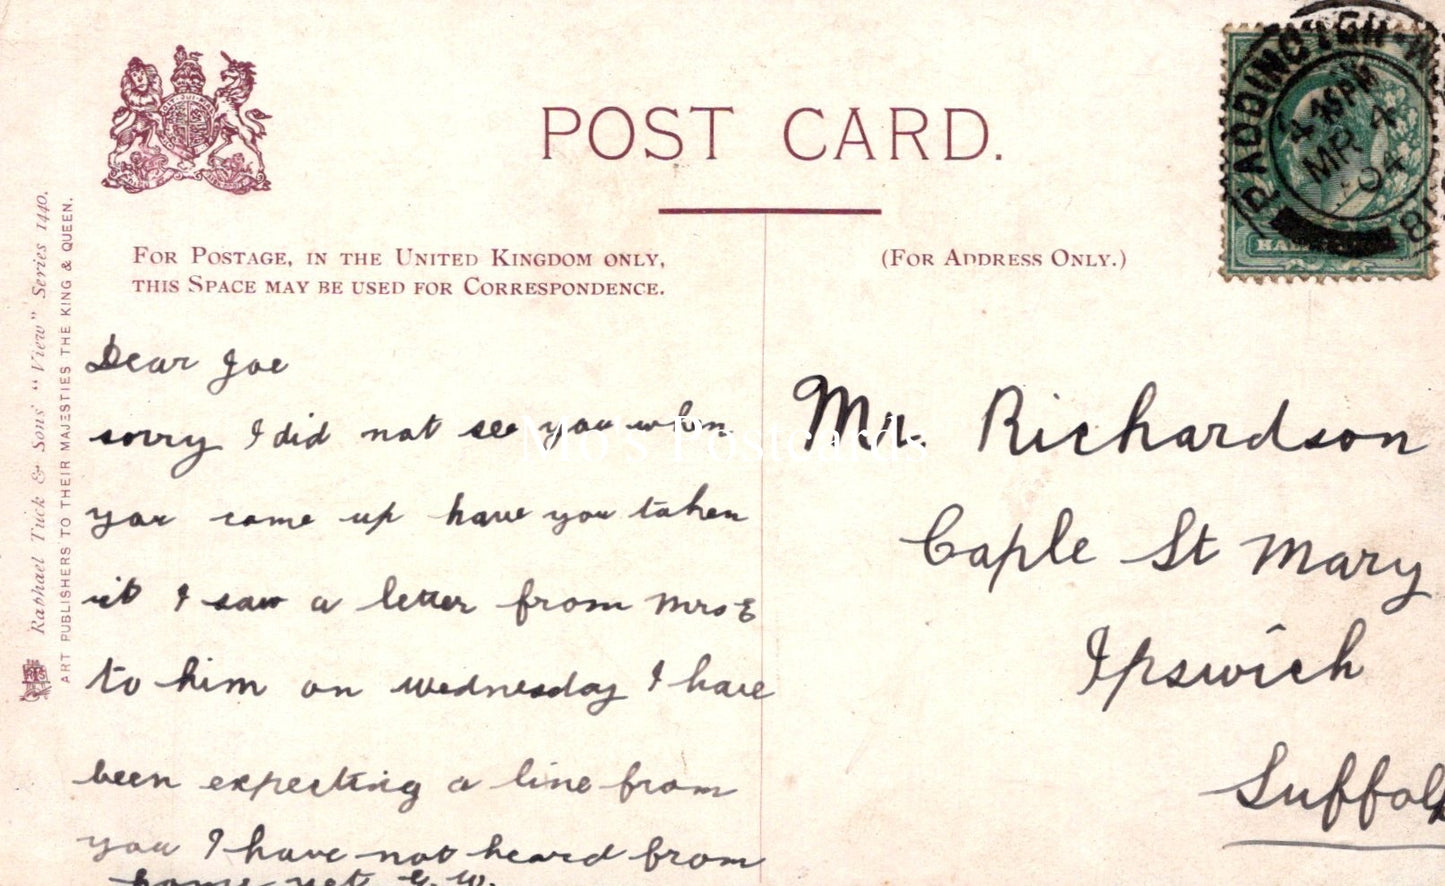 POST CARD.
FOR POSTAGE, IN THE UNITED KINGDOM ONLY,
THIS SPACE MAY BE USED FOR CORRESPONDENCE.
(FOR ADDRESS ONLY.)
Raphael Tuck & Sons' "View" Series 1440.
ART PUBLISHERS TO THEIR MAJESTIES THE KING & QUEEN.
PADDINGTON
MR 4
04
Dear Joe
sorry I did not see you when
you came up have you taken
it I saw a letter from Mrs E
to him on wednesday I have
been expecting a line from
you I have not heard from
home yet G. W.
Mr. Richardson
Caple St Mary
Ipswich
Suffolk
Mo's Postcards